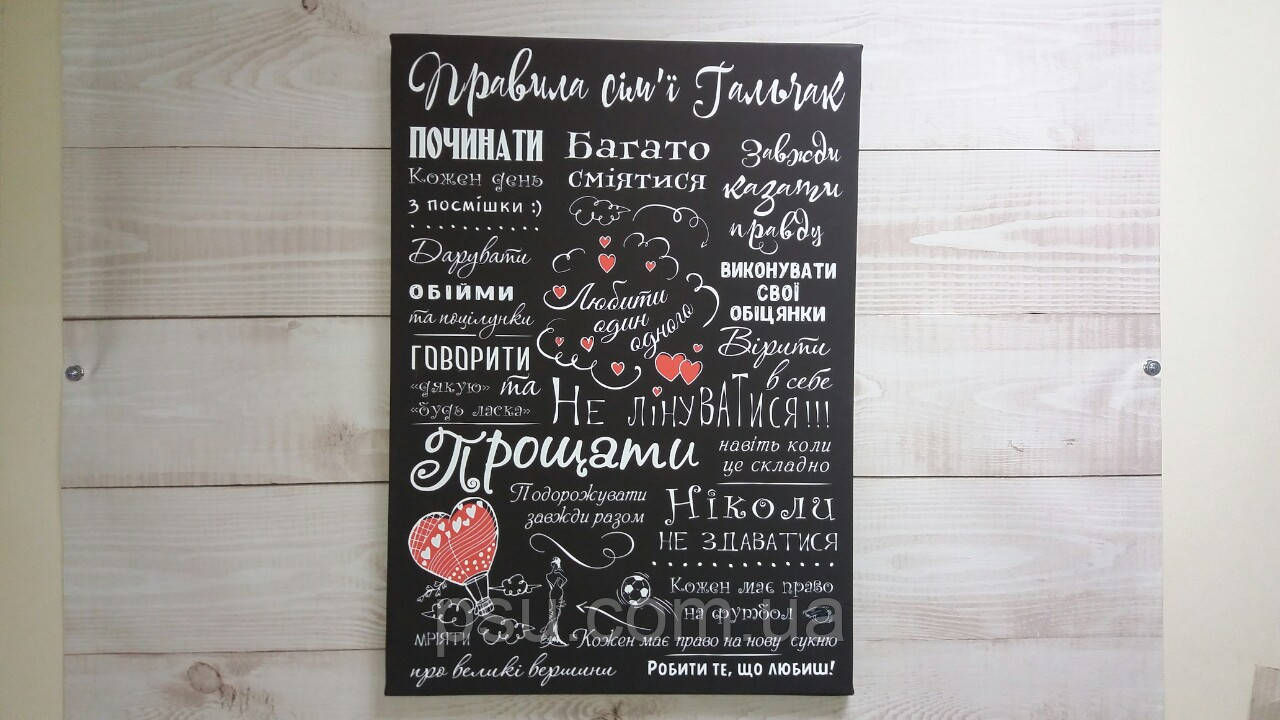 Правила сім'ї Гальчак
ПОЧИНАТИ
Кожен день
з посмішки :)
Багато
сміятися
Завжди
казати
правду
Дарувати
обійми
та поцілунки
Любити
один
одного
ВИКОНУВАТИ
СВОЇ
ОБІЦЯНКИ
Вірити
в себе
ГОВОРИТИ
«дякую» та
«будь ласка»
Не лінуватися!!!
Прощати
навіть коли
це складно
Подорожувати
завжди разом
Ніколи
не здаватися
Кожен має право
на футбол
Кожен має право на нову сукню
мріяти
про великі вершини
Робити те, що любиш!
psu.com.ua